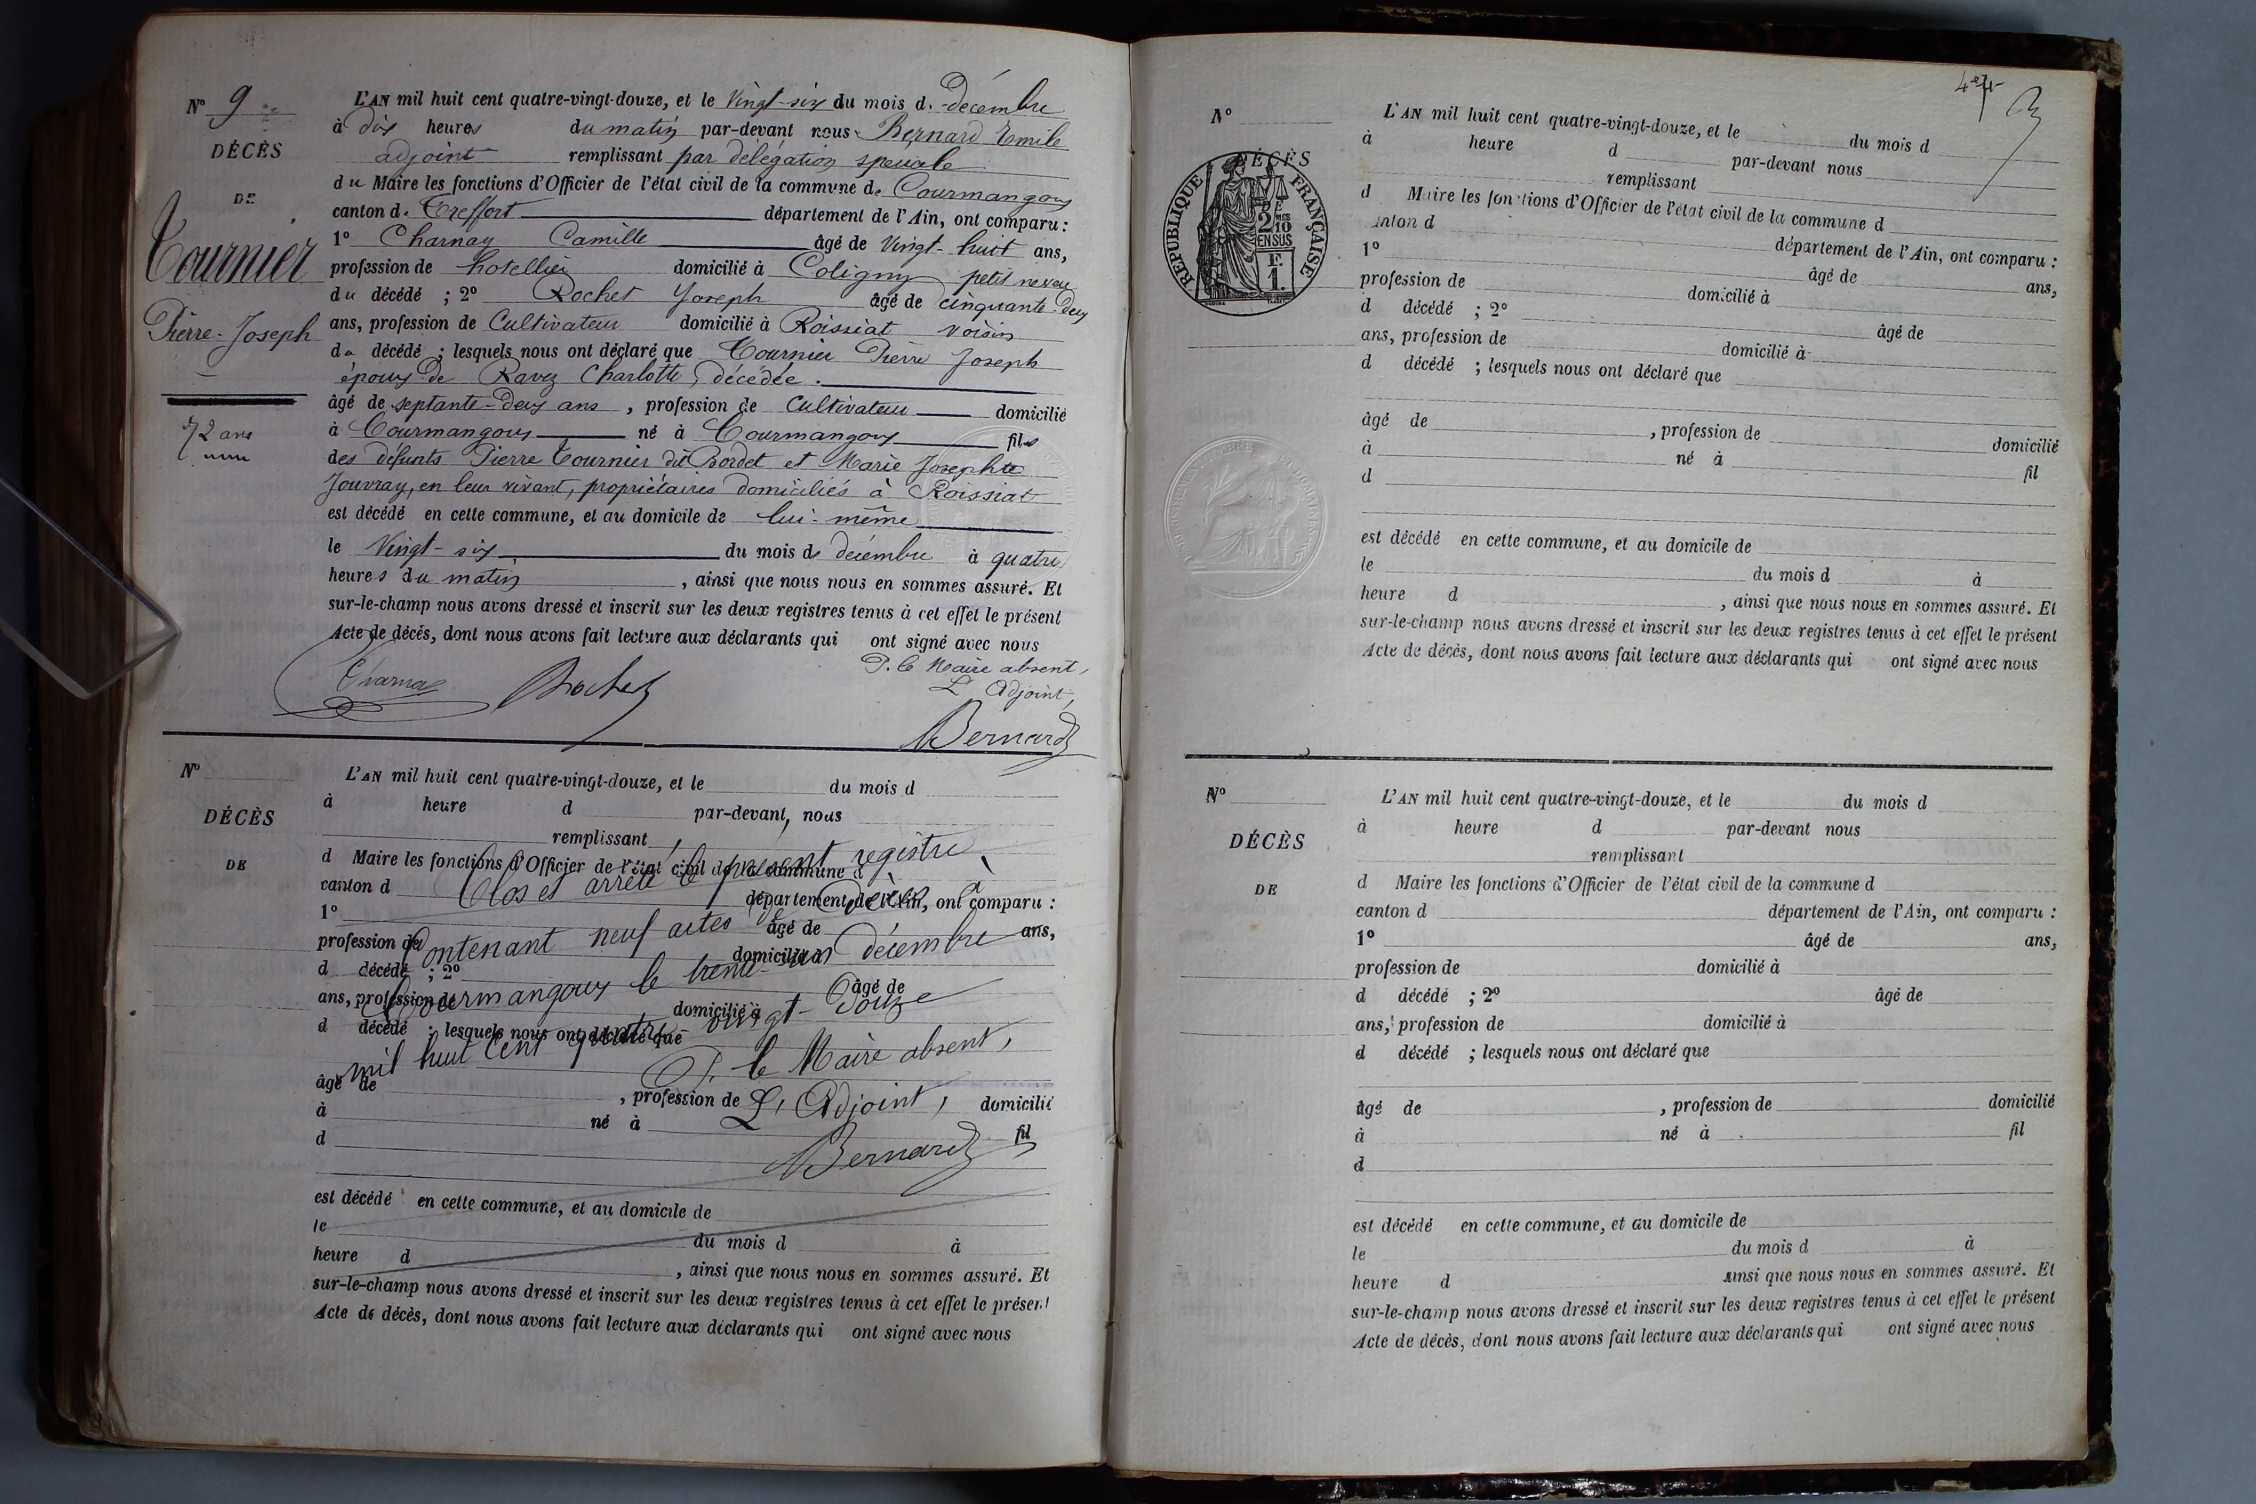 N° 9
DÉCÈS
DE
Tournier
Pierre-Joseph
72 ans
L'AN mil huit cent quatre-vingt-douze, et le Vingt-six du mois de Décembre
à dix heures du matin par-devant nous Bernard Emile
adjoint remplissant par délégation speciale
du Maire les fonctions d'Officier de l'état civil de la commune de Courmangoux
canton de Treffort département de l'Ain, ont comparu :
1° Charnay Camille âgé de Vingt-huit ans,
profession de hotellier domicilié à Coligny petit neveu
du décédé ; 2° Rochet Joseph âgé de cinquante-deux
ans, profession de Cultivateur domicilié à Roissiat voisin
du décédé ; lesquels nous ont déclaré que Tournier Pierre Joseph
époux de Ravez Charlotte, décédée.
âgé de septante-deux ans , profession de Cultivateur domicilié
à Courmangoux né à Courmangoux fils
des défunts Pierre Tournier dit Bordet et Marie Josephte
Jouvray, en leur vivant, propriétaires domiciliés à Roissiat
est décédé en cette commune, et au domicile de lui-même
le Vingt-six du mois de décembre à quatre
heures du matin , ainsi que nous nous en sommes assuré. Et
sur-le-champ nous avons dressé et inscrit sur les deux registres tenus à cet effet le présent
Acte de décès, dont nous avons fait lecture aux déclarants qui ont signé avec nous
P. le Maire absent,
L'Adjoint,
Charnay Rochet
Bernard
N°
DÉCÈS
DE
L'AN mil huit cent quatre-vingt-douze, et le du mois d
à heure d par-devant nous
remplissant
d Maire les fonctions d'Officier de l'état civil de la commune d
canton d département de l'Ain, ont comparu :
1° âgé de ans,
profession de domicilié à
d décédé ; 2° âgé de
ans, profession de domicilié à
d décédé ; lesquels nous ont déclaré que
âgé de , profession de domicilié
à né à fil
d
est décédé en cette commune, et au domicile de
le du mois d à
heure d , ainsi que nous nous en sommes assuré. Et
sur-le-champ nous avons dressé et inscrit sur les deux registres tenus à cet effet le présent
Acte de décès, dont nous avons fait lecture aux déclarants qui ont signé avec nous
Clos et arrêté le présent registre
Contenant neuf actes de Décès à
Courmangoux le trente-un décembre
mil huit cent quatre-vingt-douze
P. le Maire absent,
L'Adjoint,
Bernard
N°
DÉCÈS
RÉPUBLIQUE FRANÇAISE
2 10
EN SUS
F.
1.
L'AN mil huit cent quatre-vingt-douze, et le du mois d
à heure d par-devant nous
remplissant
d Maire les fonctions d'Officier de l'état civil de la commune d
anton d département de l'Ain, ont comparu :
1° âgé de ans,
profession de domicilié à
d décédé ; 2° âgé de
ans, profession de domicilié à
d décédé ; lesquels nous ont déclaré que
âgé de , profession de domicilié
à né à
d fil
est décédé en cette commune, et au domicile de
le du mois d à
heure d , ainsi que nous nous en sommes assuré. Et
sur-le-champ nous avons dressé et inscrit sur les deux registres tenus à cet effet le présent
Acte de décès, dont nous avons fait lecture aux déclarants qui ont signé avec nous
N°
DÉCÈS
DE
L'AN mil huit cent quatre-vingt-douze, et le du mois d
à heure d par-devant nous
remplissant
d Maire les fonctions d'Officier de l'état civil de la commune d
canton d département de l'Ain, ont comparu :
1° âgé de ans,
profession de domicilié à
d décédé ; 2° âgé de
ans, profession de domicilié à
d décédé ; lesquels nous ont déclaré que
âgé de , profession de domicilié
à né à fil
d
est décédé en cette commune, et au domicile de
le du mois d à
heure d ainsi que nous nous en sommes assuré. Et
sur-le-champ nous avons dressé et inscrit sur les deux registres tenus à cet effet le présent
Acte de décès, dont nous avons fait lecture aux déclarants qui ont signé avec nous